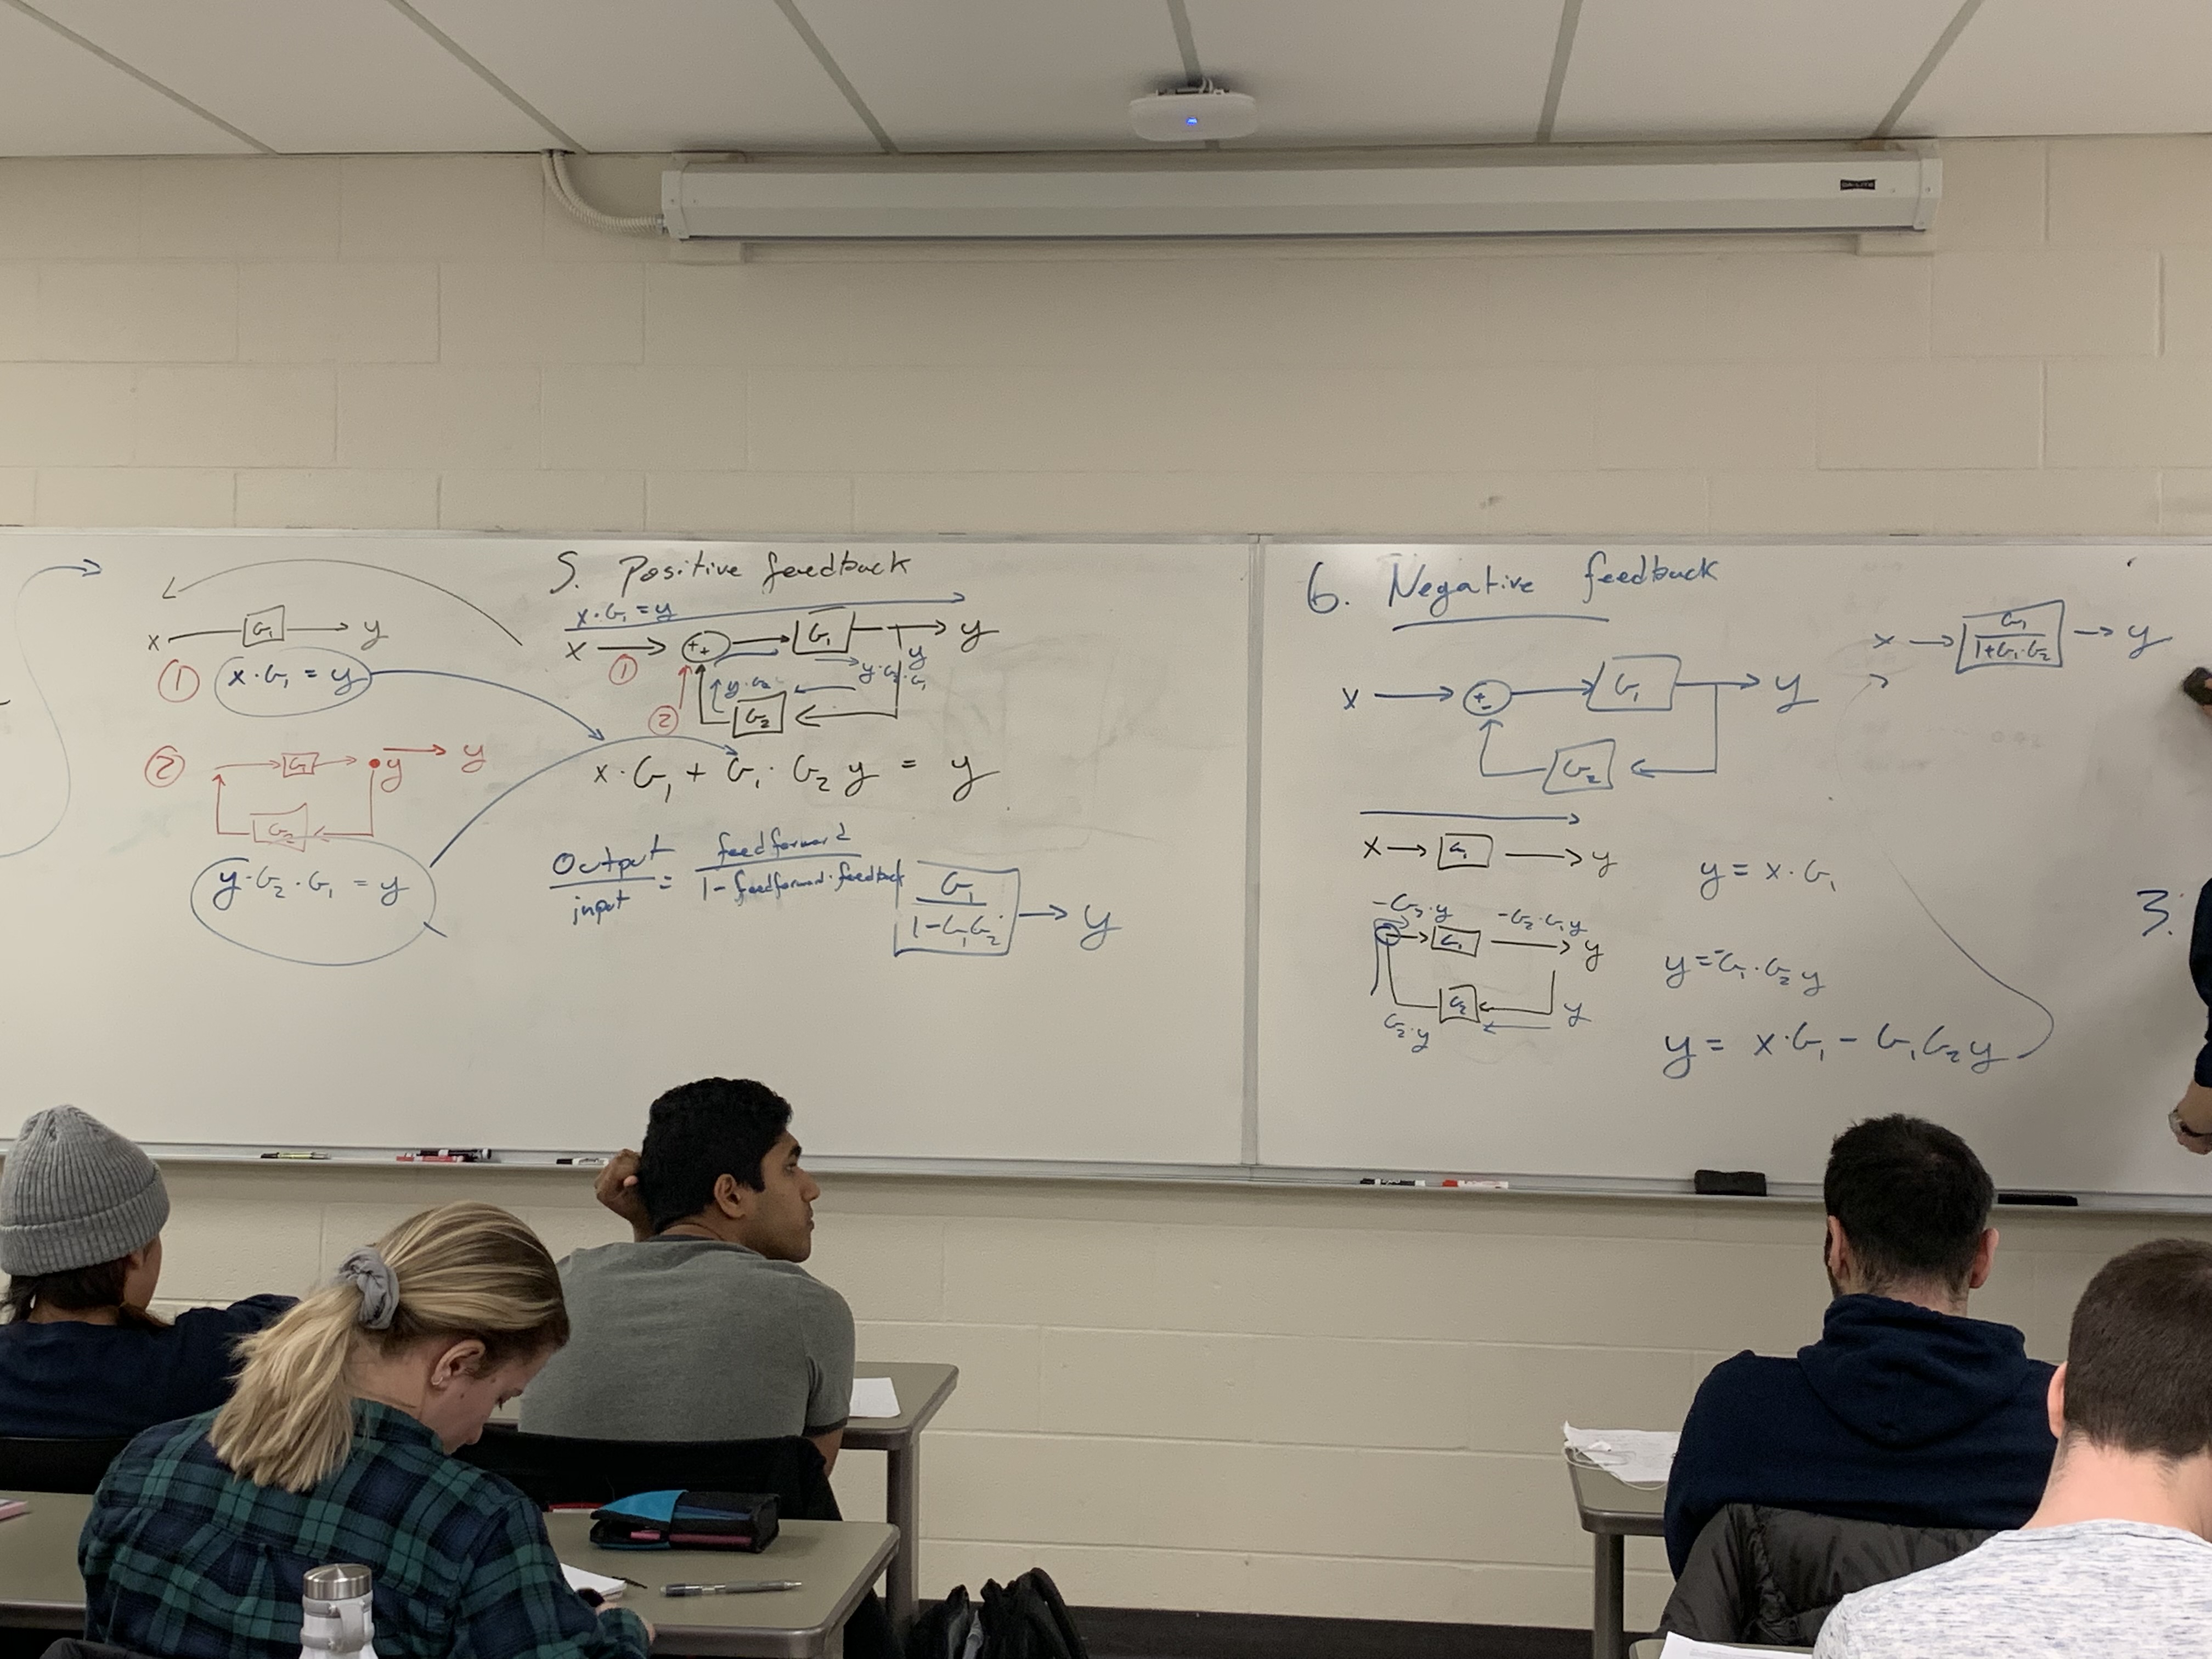 x G₁ y
① x·G₁ = y
② G₁ y y
G₂
y·G₂·G₁ = y
5. Positive feedback
x·G₁ = y
x ① ++ G₁ y
y
y·G₂ y·G₂·G₁
② G₂
x·G₁ + G₁·G₂ y = y
Output/input = feedforward/1-feedforward·feedback
G₁/1-G₁G₂ y
6. Negative feedback
x G₁/1+G₁·G₂ y
x +- G₁ y
G₂
x G₁ y
y = x·G₁
-G₂·y -G₂·G₁y
G₁ y
y=-G₁·G₂ y
G₂ y
G₂·y
y = x·G₁ - G₁G₂y
3.
DA-LITE